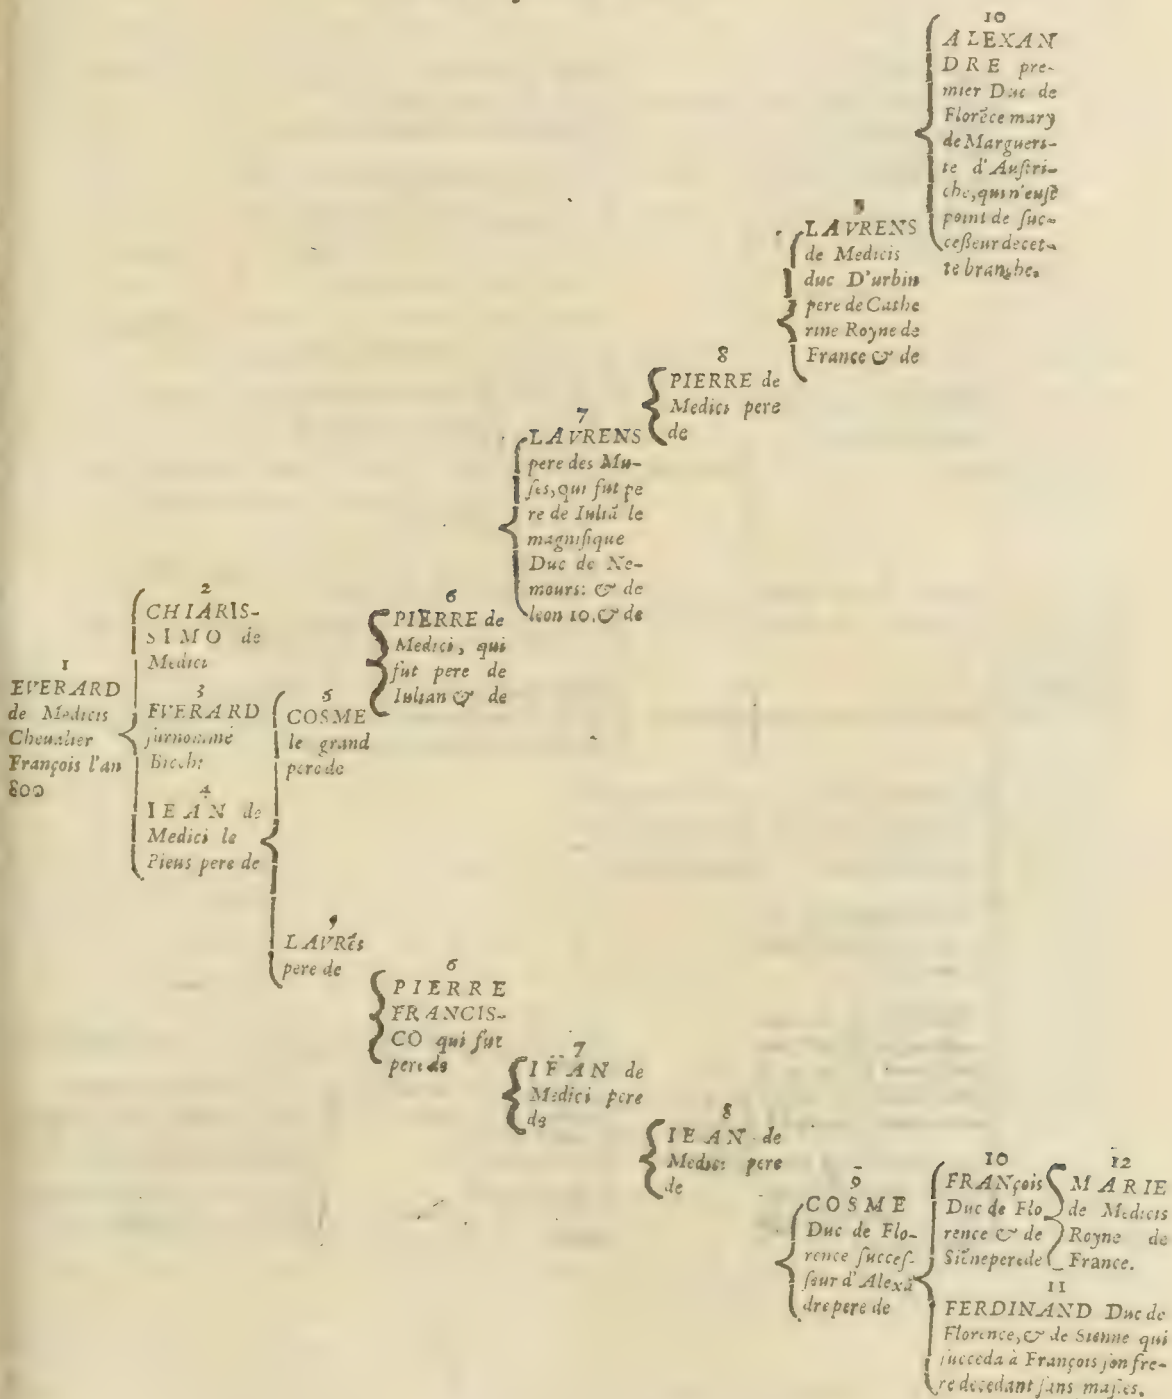 1
EVERARD
de Medicis
Cheualier
François l'an
800
2
CHIARIS-
SIMO de
Medici
3
EVERARD
surnommé
Bicchi
4
IEAN de
Medici le
Pieus pere de
5
COSME
le grand
pere de
6
PIERRE de
Medici, qui
fut pere de
Iulian & de
7
LAVRENS
pere des Mu-
ses, qui fut pe
re de Iuliā le
magnifique
Duc de Ne-
mours: & de
leon 10. & de
8
PIERRE de
Medici pere
de
9
LAVRENS
de Medicis
duc D'urbin
pere de Cathe
rine Royne de
France & de
10
ALEXAN
DRE pre-
mier Duc de
Florēce mary
de Margueri-
te d'Austri-
che, qui n'eust
point de suc-
cesseur de cet-
te branche.
LAVRēs
pere de
6
PIERRE
FRANCIS-
CO qui fut
pere de
7
IEAN de
Medici pere
de
8
IEAN de
Medici pere
de
9
COSME
Duc de Flo-
rence succes-
seur d'Alexā
dre pere de
10
FRANçois
Duc de Flo
rence & de
Siēne pere de
12
MARIE
de Medicis
Royne de
France.
11
FERDINAND Duc de
Florence, & de Sienne qui
succeda à François son fre-
re decedant sans masles.